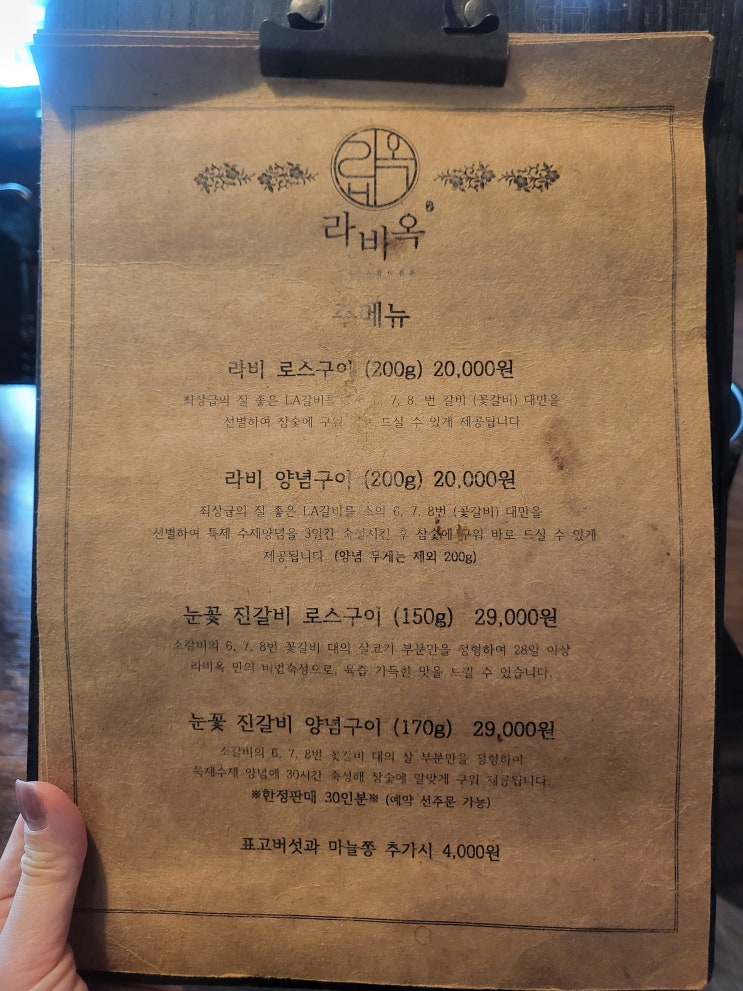 라비옥
라비옥
주메뉴
라비 로스구이 (200g) 20,000원
최상급의 질 좋은 LA갈비를 6. 7. 8. 번 갈비 (꽃갈비) 대만을
선별하여 참숯에 구워 드실 수 있게 제공됩니다
라비 양념구이 (200g) 20,000원
최상급의 질 좋은 LA갈비를 소의 6. 7. 8번 (꽃갈비) 대만을
선별하여 특제 수제양념을 3일간 숙성시킨 후 참숯에 구워 바로 드실 수 있게
제공됩니다 (양념 무게는 제외 200g)
눈꽃 진갈비 로스구이 (150g) 29,000원
소갈비의 6. 7. 8번 꽃갈비 대의 살코기 부분만을 정형하여 28일 이상
라비옥 만의 비법숙성으로, 육즙 가득한 맛을 느낄 수 있습니다.
눈꽃 진갈비 양념구이 (170g) 29,000원
소갈비의 6. 7. 8번 꽃갈비 대의 살 부분만을 정형하여
특제수제 양념에 30시간 숙성해 참숯에 알맞게 구워 제공됩니다.
※한정판매 30인분※ (예약 선주문 가능)
표고버섯과 마늘쫑 추가시 4,000원